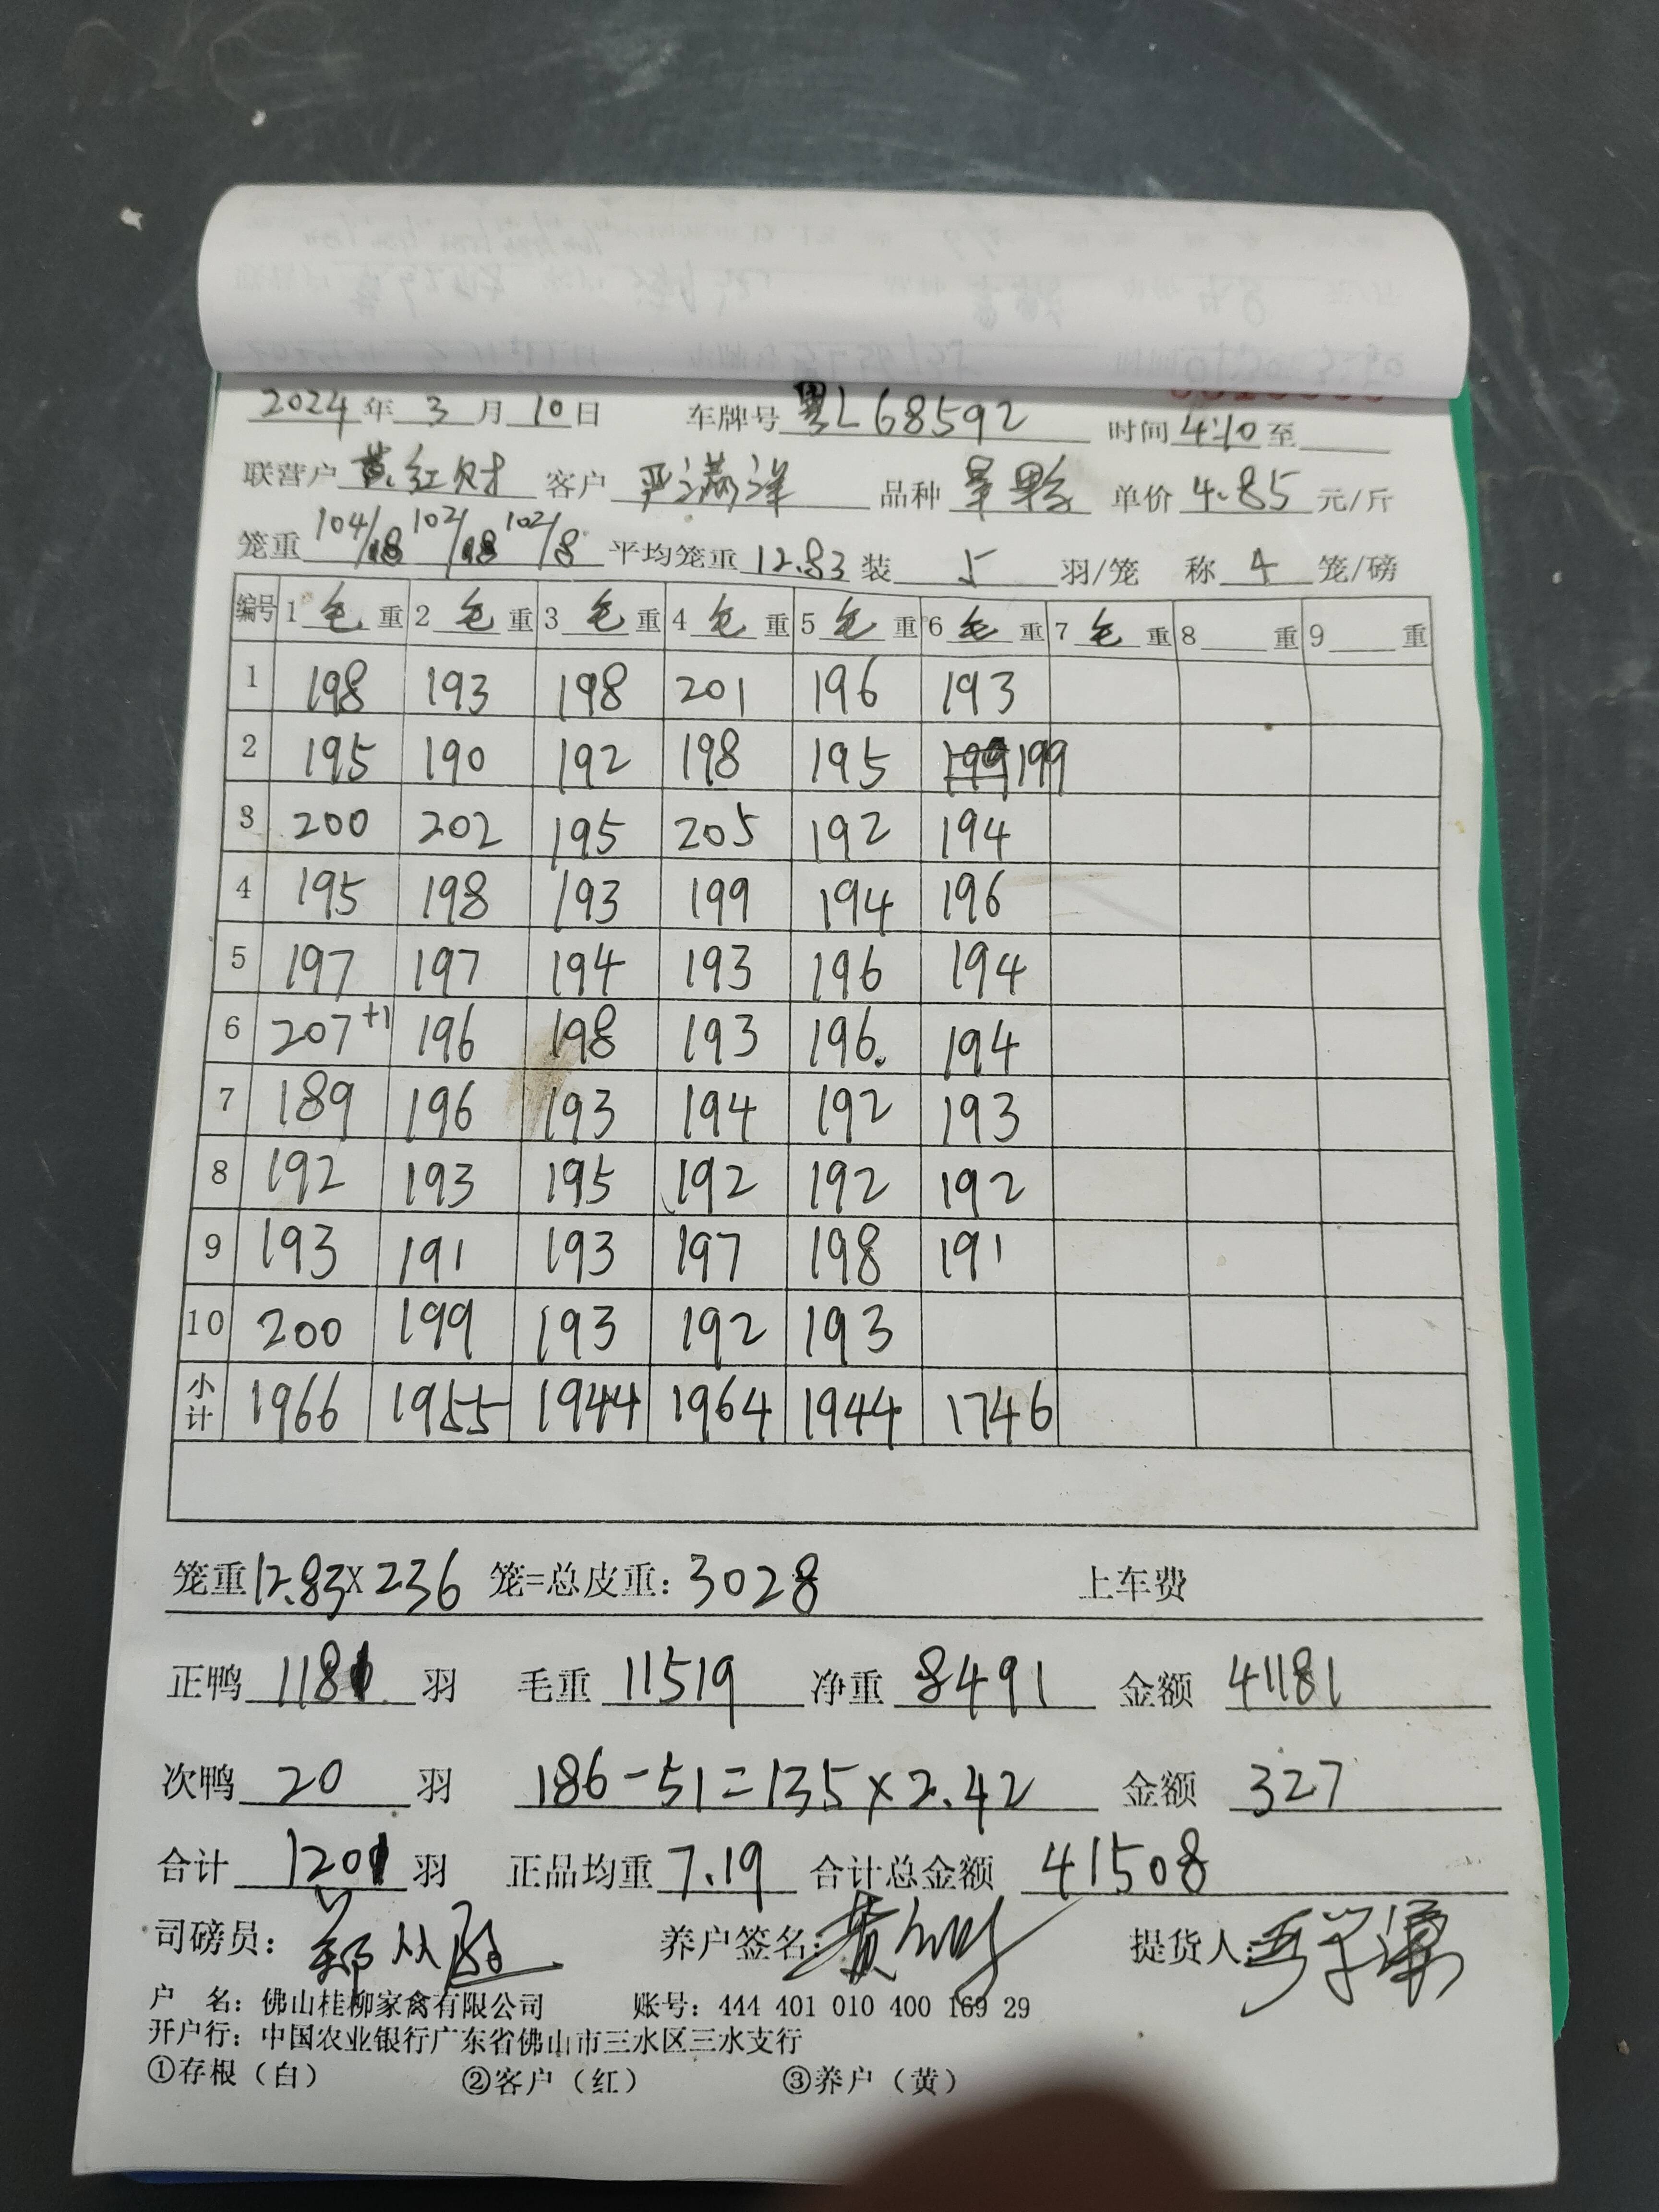 2024年 3 月 10 日 车牌号 粤L68592 时间 4:10 至
联营户 黄红财 客户 严满洋 品种 单价 4.85 元/斤
笼重 104/8 102/8 102/8 平均笼重 12.83 装 5 羽/笼 称 4 笼/磅
编号 1 毛 重 2 毛 重 3 毛 重 4 毛 重 5 毛 重 6 毛 重 7 毛 重 8 重 9 重
1 198 193 198 201 196 193
2 195 190 192 198 195 199 199
3 200 202 195 205 192 194
4 195 198 193 199 194 196
5 197 197 194 193 196 194
6 207+1 196 198 193 196. 194
7 189 196 193 194 192 193
8 192 193 195 192 192 192
9 193 191 193 197 198 191
10 200 199 193 192 193
小计 1966 1955 1944 1964 1944 1746
笼重 12.83 x 236 笼=总皮重: 3028 上车费
正鸭 1181 羽 毛重 11519 净重 8491 金额 41181
次鸭 20 羽 186-51=135×2.42 金额 327
合计 1201 羽 正品均重 7.19 合计总金额 41508
司磅员: 养户签名: 提货人:
户 名: 佛山桂柳家禽有限公司 账号: 444 401 010 400 169 29
开户行: 中国农业银行广东省佛山市三水区三水支行
①存根（白） ②客户（红） ③养户（黄）